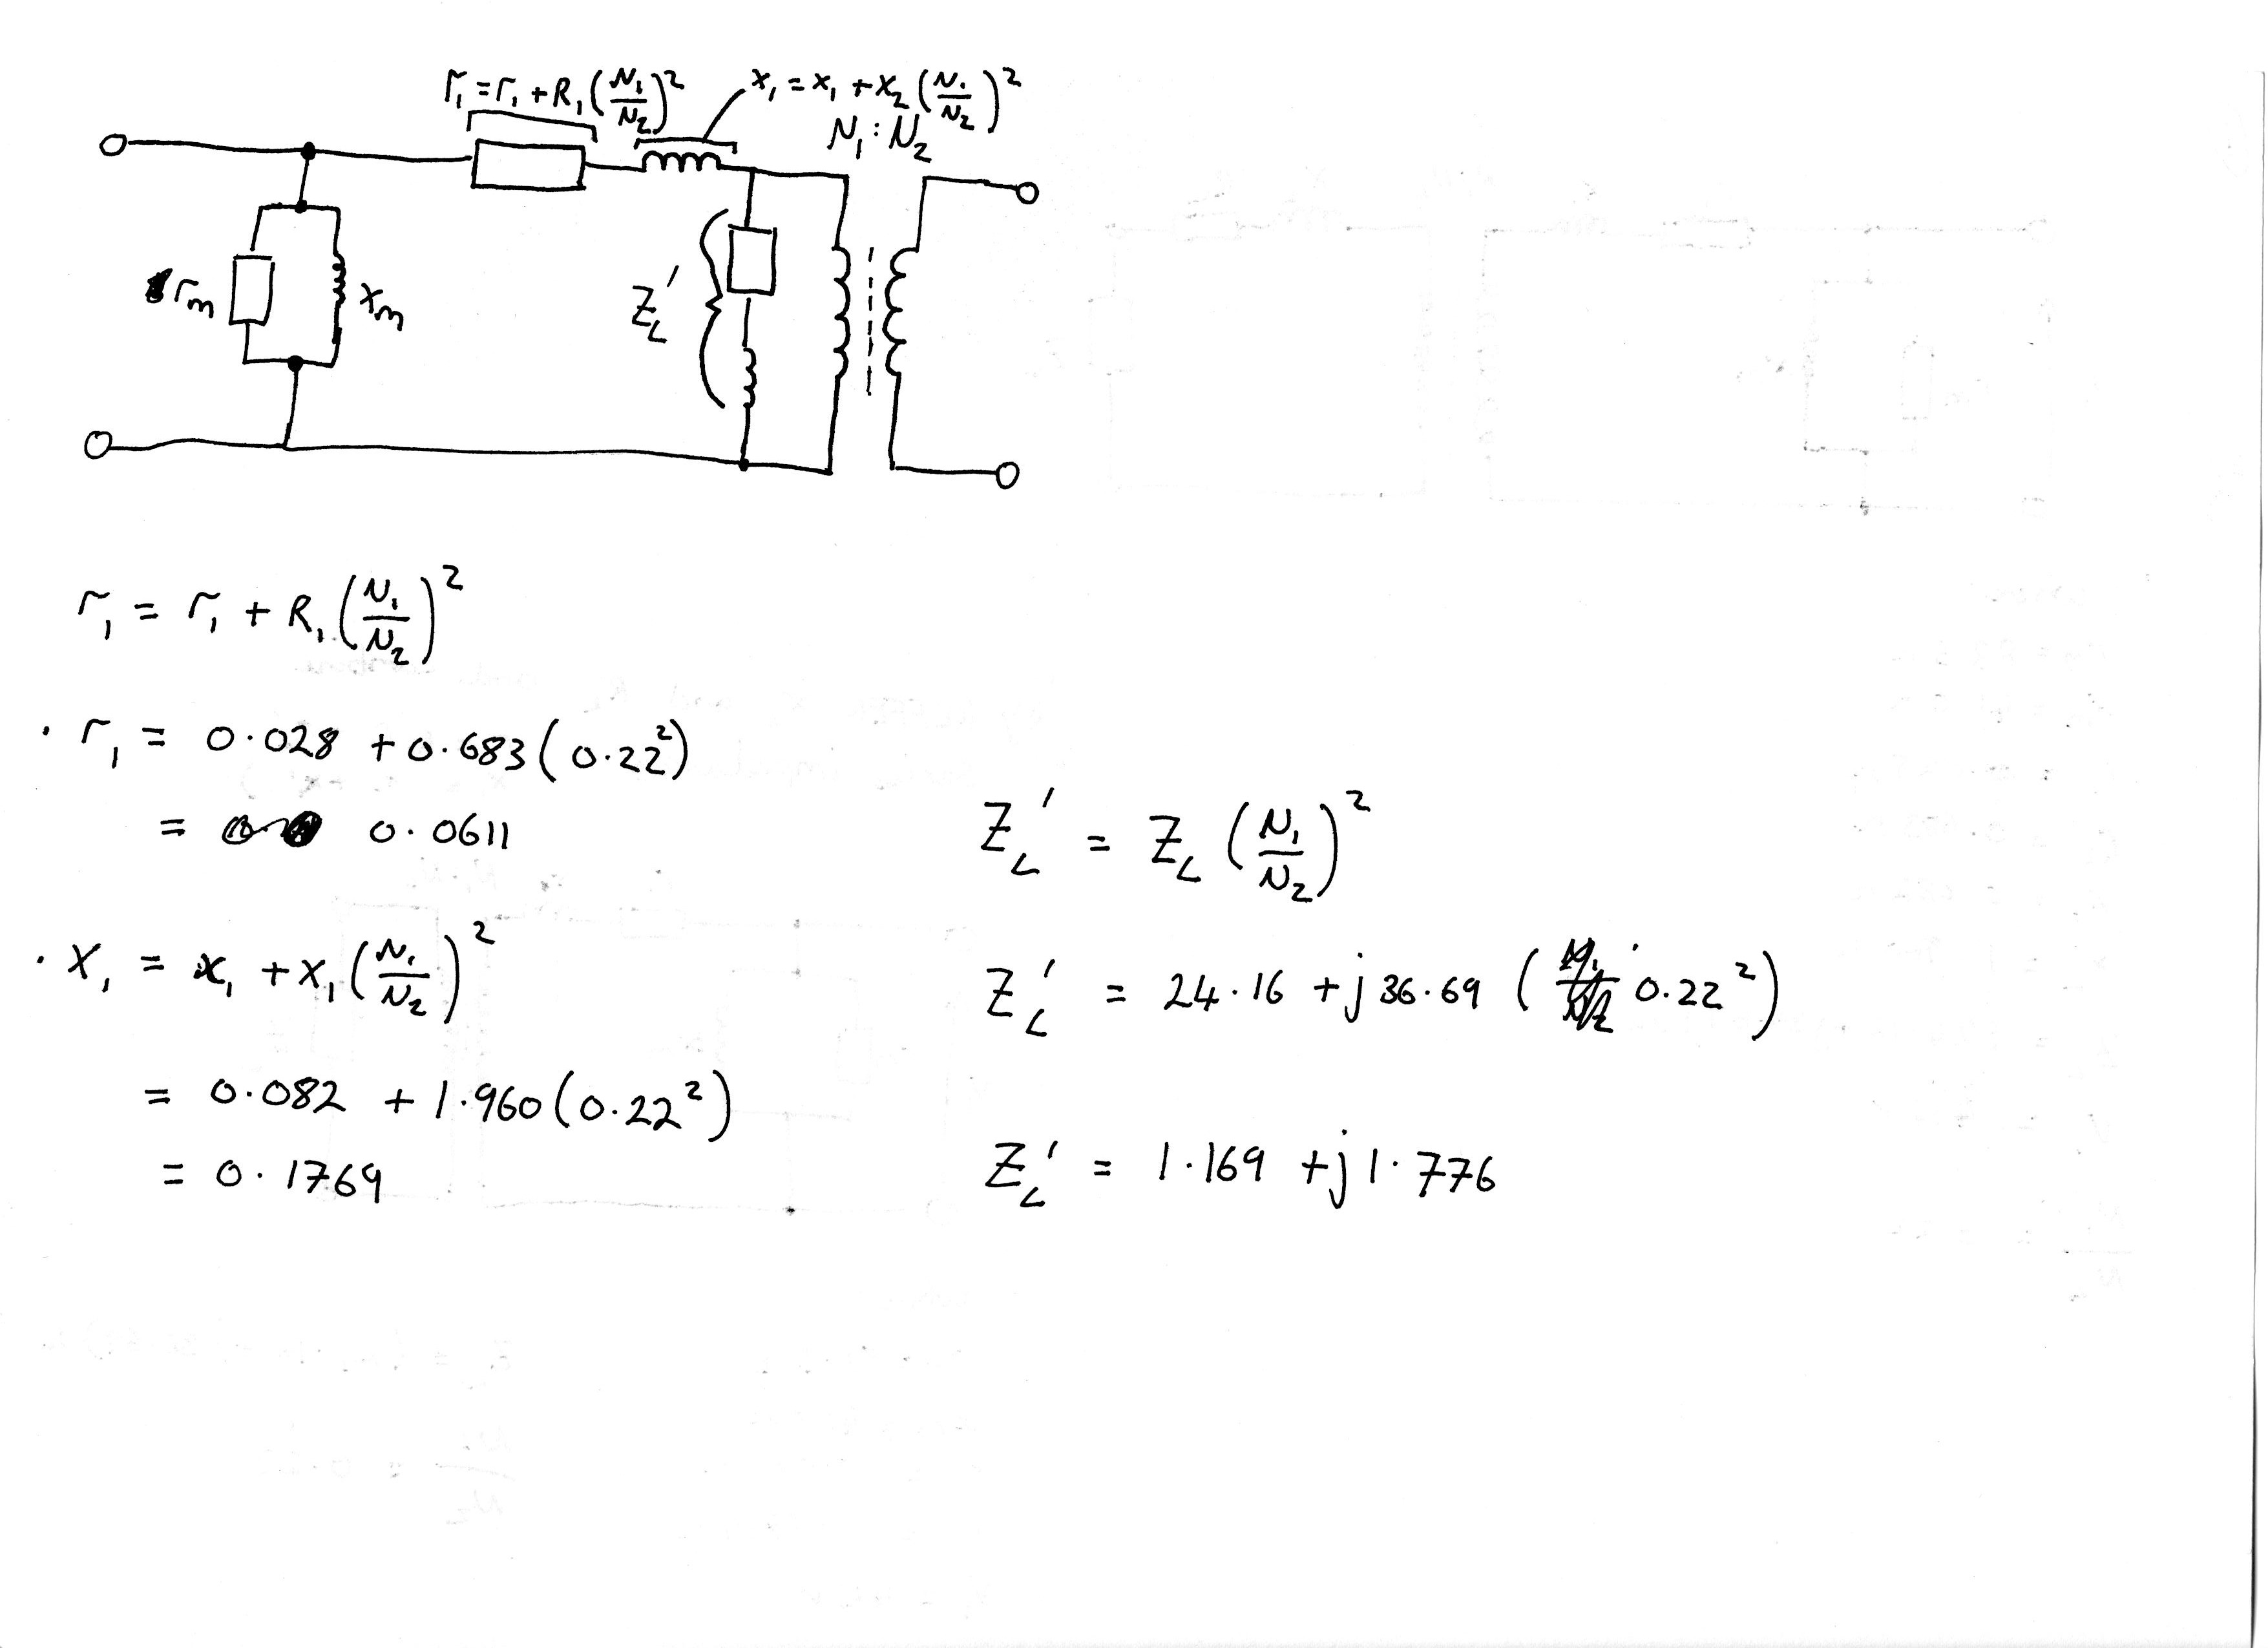 r₁ = r₁ + R₁ (N₁/N₂)²
x₁ = x₁ + x₂ (N₁/N₂)²
N₁ : N₂
rm
xm
Z_L'
r₁ = r₁ + R₁ (N₁/N₂)²
· r₁ = 0.028 + 0.683 (0.22²)
= 0.0611
· X₁ = x₁ + X₁ (N₁/N₂)²
= 0.082 + 1.960 (0.22²)
= 0.1769
Z_L' = Z_L (N₁/N₂)²
Z_L' = 24.16 + j 36.69 (0.22²)
Z_L' = 1.169 + j 1.776